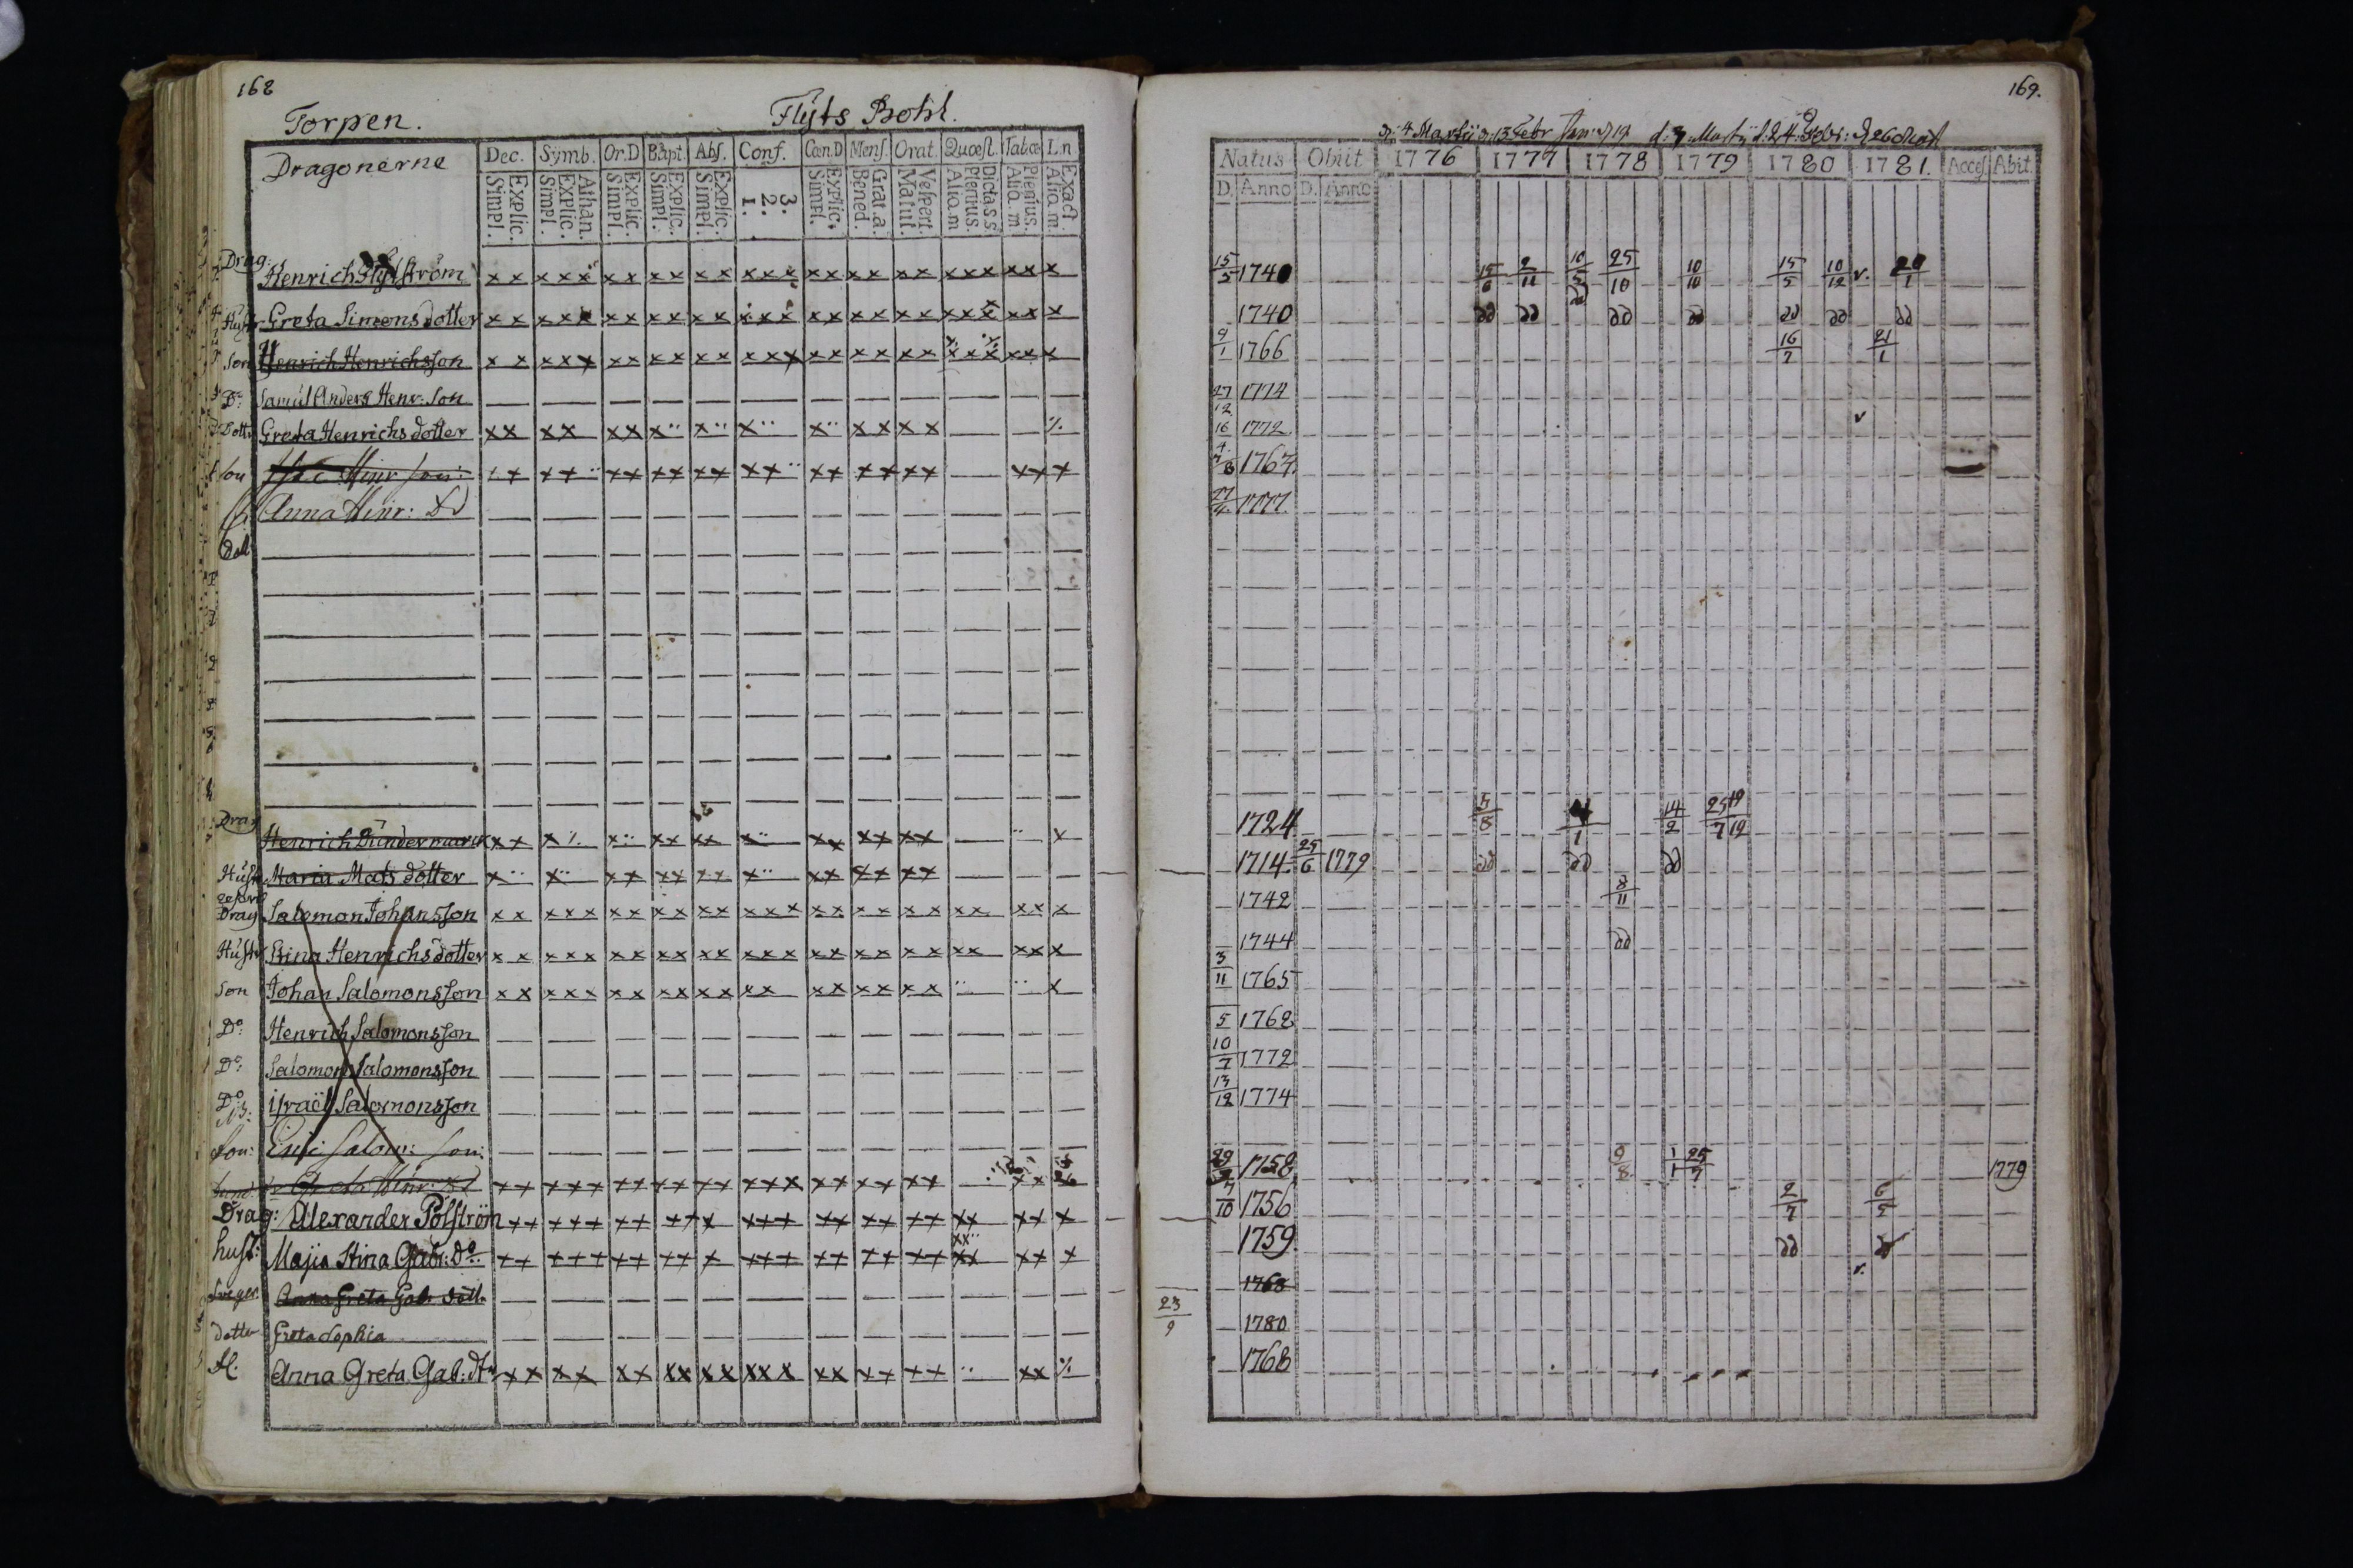 168
Torpen. Flyts Bohl.
Dragonerne Dec. Symb. Or.D Bapt. Abs. Conf. Cœn.D Mens. Orat. Quæst. Tabœ L.n
Simpl. Explic. Simpl. Explic. Athan. Simpl. Explic. Simpl. Explic. Simpl. Explic. 1. 2. 3. Simpl. Explic. Bened. Grat.a. Matut. Vespert. Aliq.m Plenius. Dicta.s.s Aliq.m Plenius. Aliq.m. Exact.
Drag: Henrich Flytström
Hustr Greta Simonsdotter
Son Henrich Henrichsson
Do: Samúl Anders Henr: Son
Dotter Greta Henrichsdotter
Son Hinr son:
Anna Hinr: D
Drag Henrich Dúndermarck
Hústr Maria Matsdotter
Drag Salomon Johansson
Hústr Brina Henrichsdotter
Son Johan Salomonsson
Do: Henrich Salomonsson
Do: Salomon Salomonsson
Do: Israël Salomonsson
Son: Eric Salom: Son:
Greta Hinr:
Drag: Alexander Pålström
hust: Maja Stina Gabr: Do.
Sveger. Anna Greta Gab: dott.
Dotter Greta Sophia
Anna Greta Gab: dtr
169.
d: 4 Martii d: 13 Febr d: 7 Martij
Natus Obiit 1776 1777 1778 1779 1780 1781. Acces. Abit.
D. Anno D. Anno
15/5 1740 15/6 2/11 10/5 25/10 10/10 15/5 10/12 v. 20/1
1740 dd dd dd dd dd dd dd dd
2/1 1766 16/7 21/1
27/12 1774
16/4 1772 v
1767
27/4 1777
1724 5/8 4/1 14/2 25/7 19/19
1714 25/6 1779 dd dd dd
1742 8/11
1744 dd
3/11 1765
5 1768
10/7 1772
13/12 1774
29 1758 9/8 1/1 25/7 1779
10 1756 2/7 6
1759 dd dd
1768 v.
23/9 1780
1768